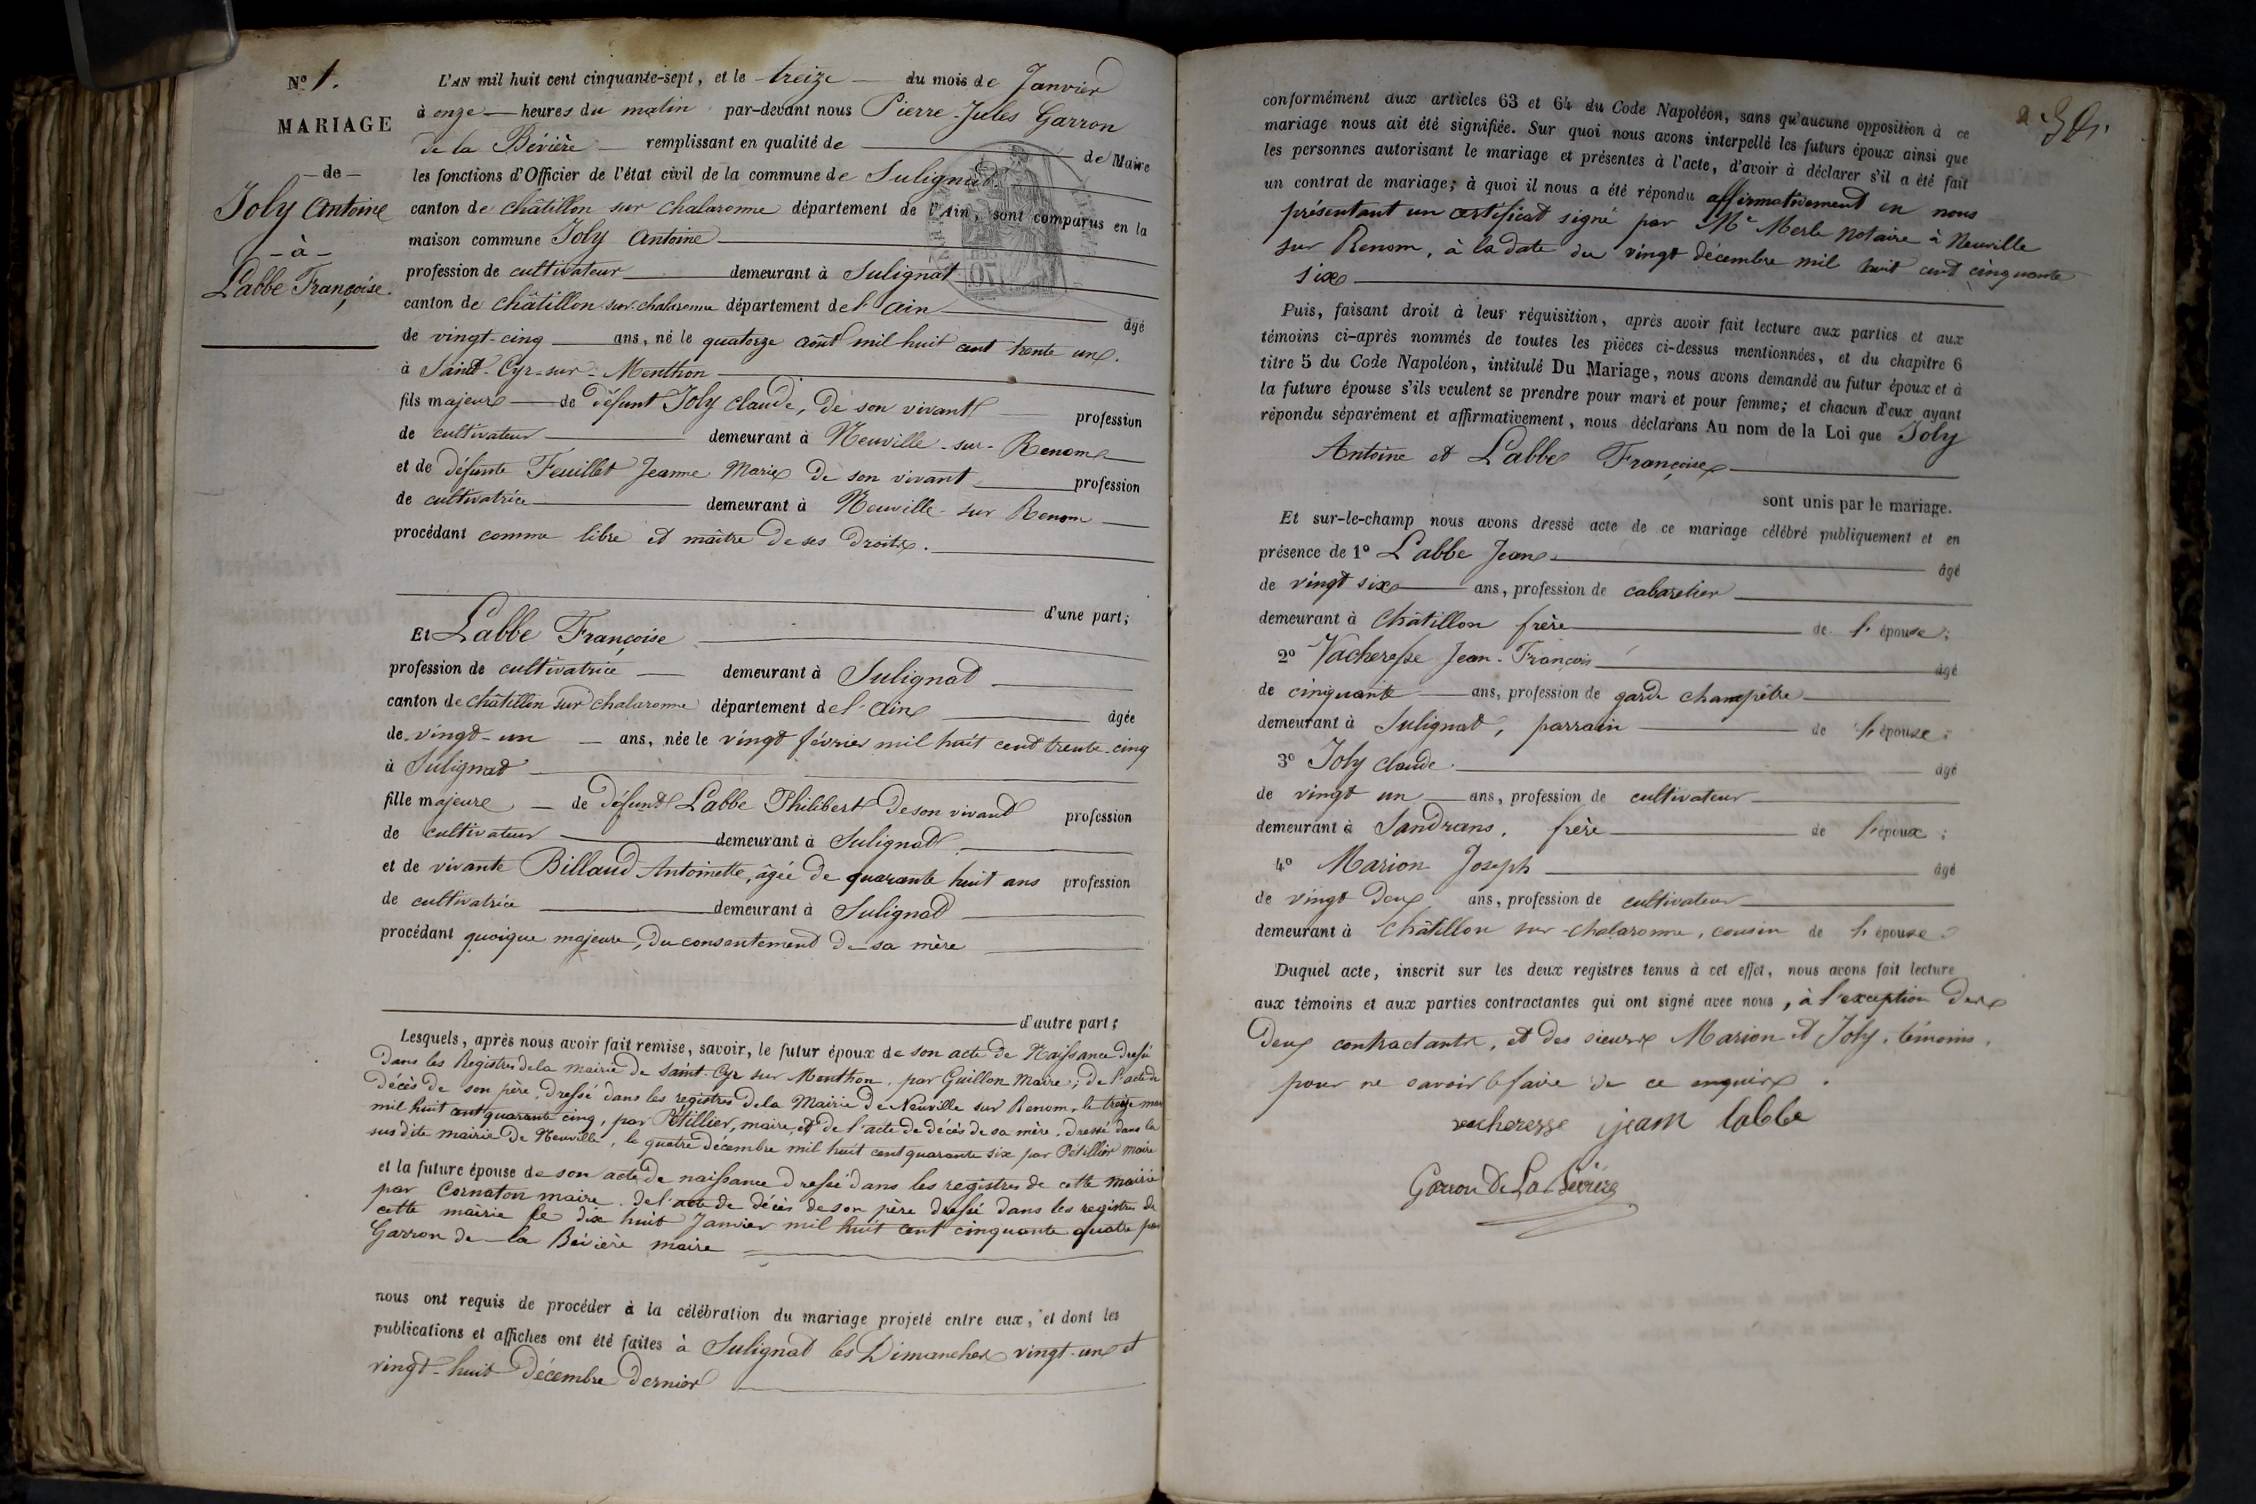 N.º 1.
MARIAGE
— de —
Joly Antoine
— à —
Labbe Françoise.
L'AN mil huit cent cinquante-sept, et le treize du mois de Janvier
à onze heures du matin par-devant nous Pierre-Jules Garron
de la Bévière remplissant en qualité de de Maire
les fonctions d'Officier de l'état civil de la commune de Sulignat
canton de châtillon sur chalaronne département de l'Ain, sont comparus en la
maison commune Joly Antoine
profession de cultivateur demeurant à Sulignat
canton de châtillon-sur-chalaronne département de l'ain âgé
de vingt-cinq ans, né le quatorze août mil huit cent trente un.
à Saint-Cyr-sur-Menthon
fils majeur de défunt Joly claude, de son vivant profession
de cultivateur demeurant à Neuville-sur-Renom
et de défunte Feuillet Jeanne Marie de son vivant profession
de cultivatrice demeurant à Neuville-sur Renom
procédant comme libre et maître de ses droits.
d'une part;
Et Labbe Françoise
profession de cultivatrice demeurant à Sulignat
canton de châtillon sur chalaronne département de l'ain âgée
de vingt-un ans, née le vingt février mil huit cent trente-cinq
à Sulignat
fille majeure de défunt Labbe Philibert de son vivant profession
de cultivateur demeurant à Sulignat
et de vivante Billaud Antoinette, âgée de quarante huit ans profession
de cultivatrice demeurant à Sulignat
procédant quoique majeure, du consentement de sa mère
d'autre part;
Lesquels, après nous avoir fait remise, savoir, le futur époux de son acte de Naissance dressé
dans les Registres de la mairie de saint-Cyr sur Menthon, par Guillon Maire; de l'acte de
décès de son père, dressé dans les registres de la Mairie de Neuville sur Renom, le treize mars
mil huit cent quarante cinq, par Pétillier, maire, et de l'acte de décès de sa mère, dressé dans la
susdite mairie de Neuville, le quatre décembre mil huit cent quarante six par Pétillier maire
et la future épouse de son acte de naissance dressé dans les registres de cette mairie
par Cornaton maire, de l'acte de décès de son père dressé dans les registres de
cette mairie le dix huit Janvier mil huit cent cinquante quatre par
Garron de la Bévière maire
nous ont requis de procéder à la célébration du mariage projeté entre eux, et dont les
publications et affiches ont été faites à Sulignat les Dimanches vingt-un et
vingt-huit décembre dernier
2
conformément aux articles 63 et 64 du Code Napoléon, sans qu'aucune opposition à ce
mariage nous ait été signifiée. Sur quoi nous avons interpellé les futurs époux ainsi que
les personnes autorisant le mariage et présentes à l'acte, d'avoir à déclarer s'il a été fait
un contrat de mariage; à quoi il nous a été répondu affirmativement en nous
présentant un certificat signé par Me Merle Notaire à Neuville
sur Renom, à la date du vingt décembre mil huit cent cinquante
six
Puis, faisant droit à leur réquisition, après avoir fait lecture aux parties et aux
témoins ci-après nommés de toutes les pièces ci-dessus mentionnées, et du chapitre 6
titre 5 du Code Napoléon, intitulé Du Mariage, nous avons demandé au futur époux et à
la future épouse s'ils veulent se prendre pour mari et pour femme; et chacun d'eux ayant
répondu séparément et affirmativement, nous déclarons Au nom de la Loi que Joly
Antoine et Labbe Françoise
sont unis par le mariage.
Et sur-le-champ nous avons dressé acte de ce mariage célébré publiquement et en
présence de 1º Labbe Jean âgé
de vingt six ans, profession de cabaretier
demeurant à Châtillon frère de l'épouse;
2º Vacheresse Jean-François âgé
de cinquante ans, profession de garde champêtre
demeurant à Sulignat, parrain de l'épouse;
3º Joly claude. âgé
de vingt un ans, profession de cultivateur
demeurant à Sandrans, frère de l'époux;
4º Marion Joseph âgé
de vingt deux ans, profession de cultivateur
demeurant à Châtillon sur-chalaronne, cousin de l'épouse.
Duquel acte, inscrit sur les deux registres tenus à cet effet, nous avons fait lecture
aux témoins et aux parties contractantes qui ont signé avec nous, à l'exception des
deux contractants, et des sieurs Marion et Joly, témoins,
pour ne savoir le faire de ce enquis.
vacheresse jean labbe
Garron De La Bévière